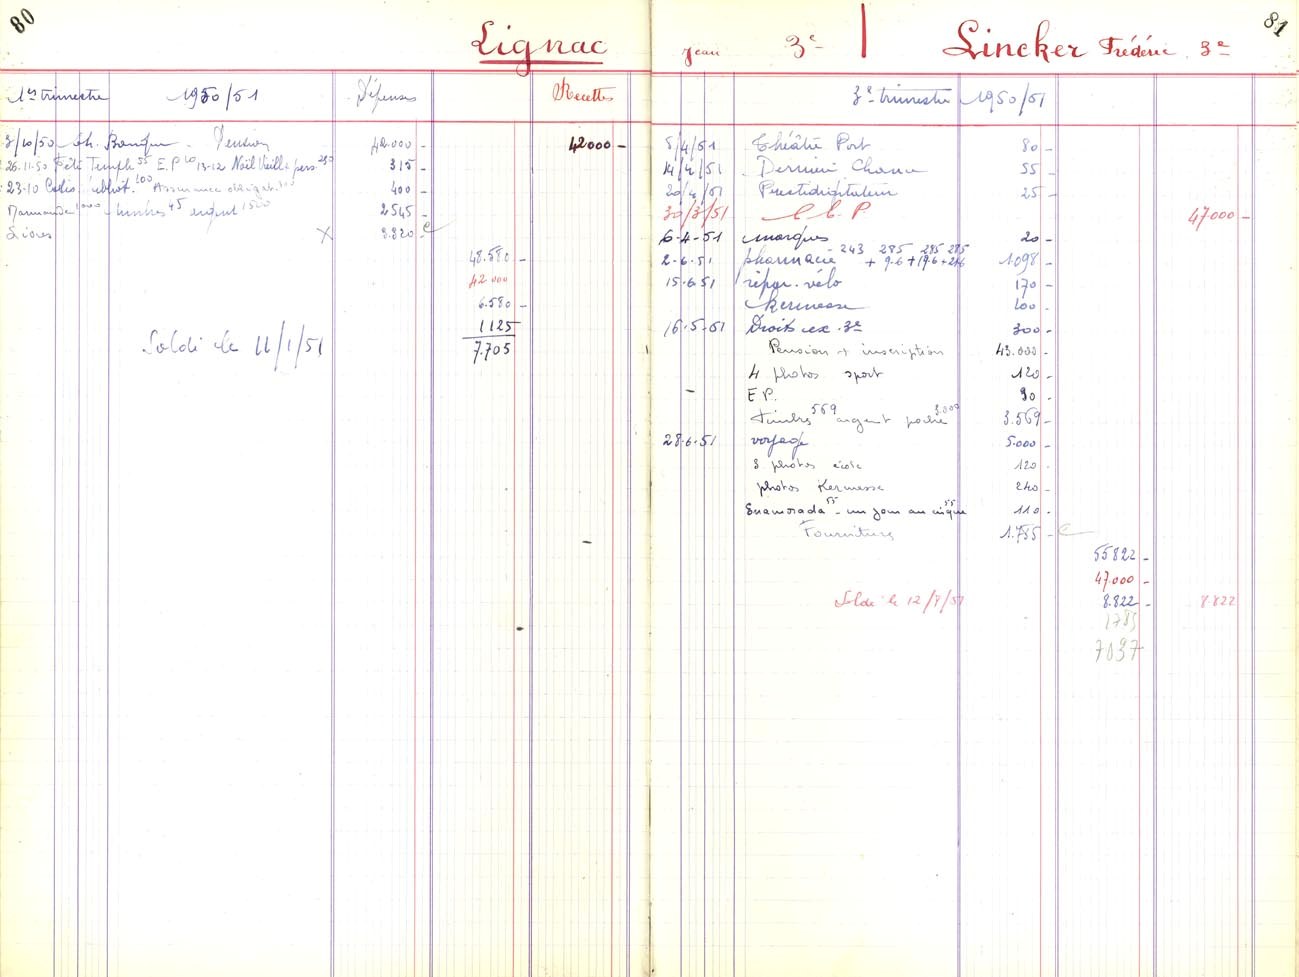 80
Lignac Jean 3e
1er trimestre 1950/51 Dépenses Recettes
3/10/50 Ch. Banque Pension 42.000 - 42000 -
26.11.50 Fête Temple 55 E.P 13-12 Noël Vieille pers 315 -
23-10 100 Assurance 400 -
1000 timbres 45 argent 1500 2545 -
Livres X 3.320 -
48.580 -
42.000
6.580 -
1125
7.705
Soldé le 11/1/51
81
Lincker Frédéric 3e
3e trimestre 1950/51
5/4/51 Théâtre Port 80 -
14/4/51 Dernière Chance 55 -
20/4/51 Prestidigitateur 25 -
30/3/51 C C P 47.000 -
6-4-51 marques 20 -
2-6-51 pharmacie 243 + 285 9.6 + 285 19.6 + 285 1.098 -
15.6.51 répar. vélo 170 -
Kermesse 100 -
16-5-51 Droits ex. 3e 300 -
Pension + inscription 43.000 -
4 photos sport 120 -
- E P. 90 -
Timbres 569 argent poche 3.000 3.569 -
28.6.51 voyage 5.000 -
3 photos école 120
photos Kermesse 240 -
Enamorada 55 - un jour au cirque 55 110 -
Fournitures 1.785 -
55822 -
47.000 -
Soldé le 12/7/51 8.822 - 8.822
1785
7037